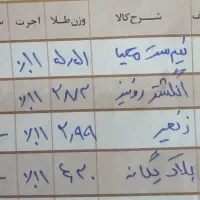 شرح کالا وزن طلا اجرت
نیم ست محیا ۵,۵۱ ٪۱۱
انگشتر رونیز ۲,۸۲ ٪۱۱
زنجیر ۲,۹۹ ٪۱۱
پلاک یگانه ۴,۳۰ ٪۱۱